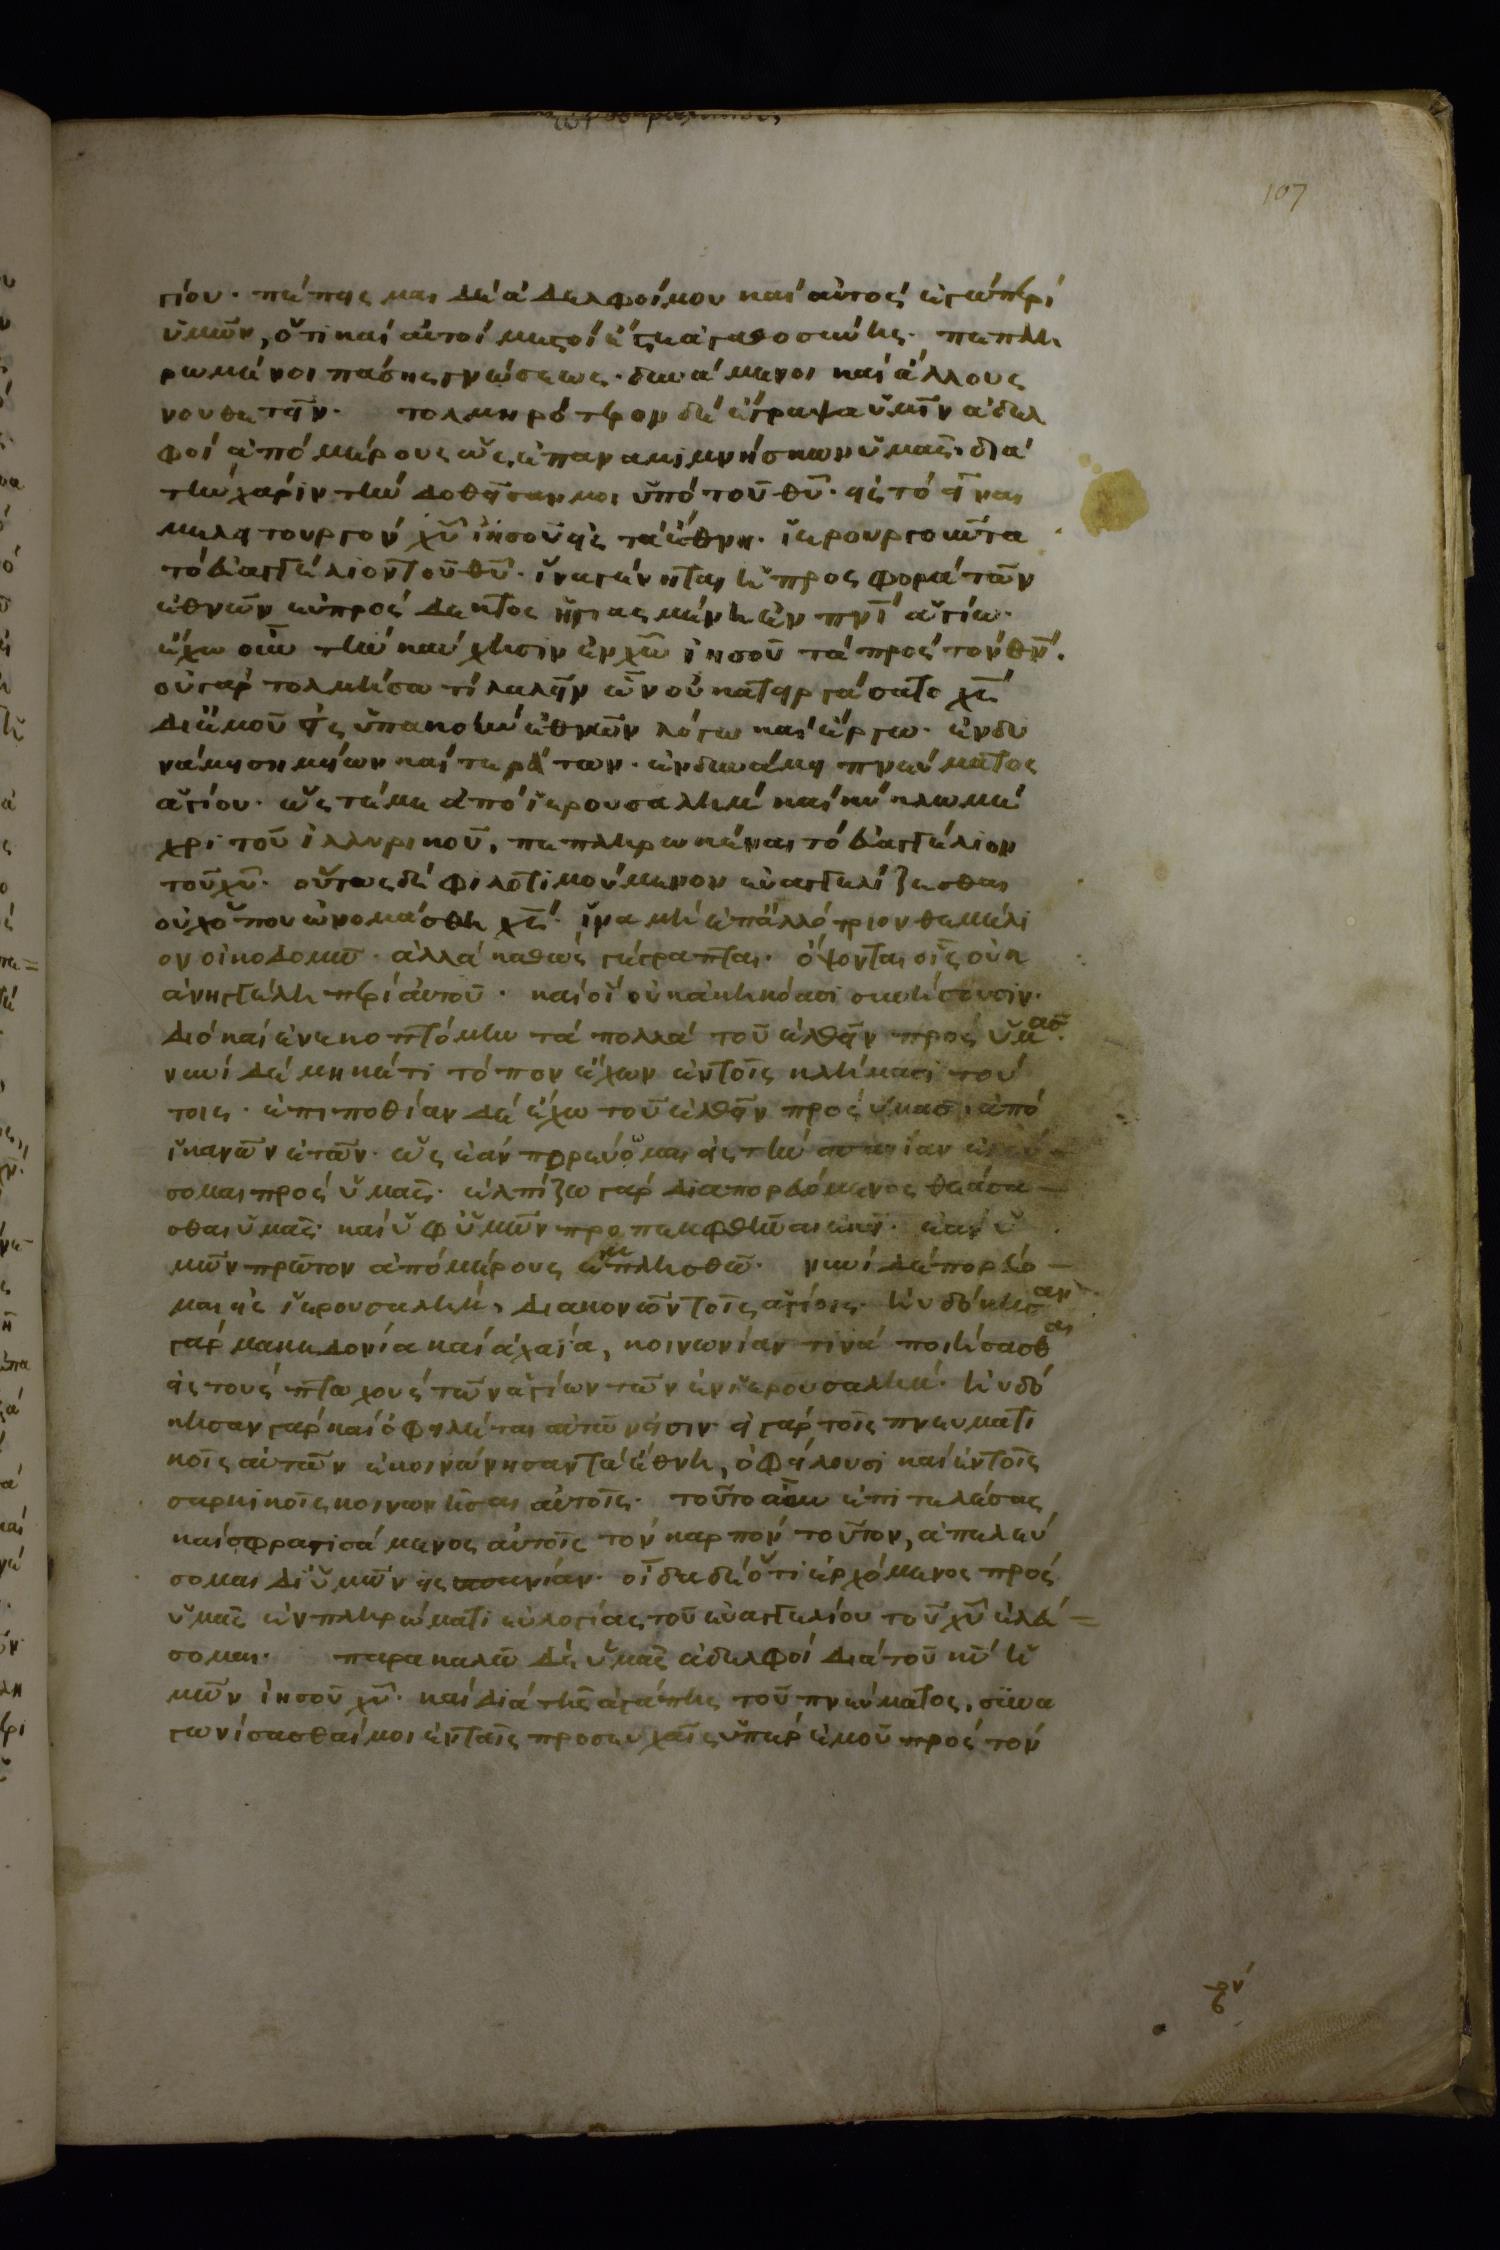 107
γίου· πέπεισμαι δέ ἀδελφοί μου καὶ αὐτὸς ἐγὼ περὶ
ὑμῶν, ὅτι καὶ αὐτοὶ μεστοί ἐστε ἀγαθοσύνης· πεπλη
ρωμένοι πάσης γνώσεως· δυνάμενοι καὶ ἄλλους
νουθετεῖν· τολμηρότερον δὲ ἔγραψα ὑμῖν ἀδελ
φοὶ ἀπὸ μέρους ὡς ἐπαναμιμνήσκων ὑμᾶς· διὰ
τὴν χάριν τὴν δοθεῖσάν μοι ὑπὸ τοῦ θυ̅· εἰς τὸ εἶναι
με λειτουργὸν χυ̅ ἰησοῦ εἰς τὰ ἔθνη· ἱερουργοῦντα
τὸ εὐαγγέλιον τοῦ θυ̅· ἵνα γένηται ἡ προσφορὰ τῶν
ἐθνῶν εὐπρόσδεκτος ἡγιασμένη ἐν πνι̅ ἁγίω·
ἔχω οὖν τὴν καύχησιν ἐν χω̅ ἰησοῦ τὰ πρὸς τὸν θν̅·
οὐ γὰρ τολμήσω τί λαλεῖν ὧν οὐ κατειργάσατο χς̅
δι ἐμοῦ εἰς ὑπακοὴν ἐθνῶν λόγω καὶ ἔργω· ἐν δυ
νάμει σημείων καὶ τεράτων· ἐν δυνάμει πνεύματος
ἁγίου· ὥστέ με ἀπὸ ἱερουσαλὴμ καὶ κύκλω μέ
χρι τοῦ ἰλλυρικοῦ, πεπληρωκέναι τὸ εὐαγγέλιον
τοῦ χυ̅· οὕτως δὲ φιλοτιμούμενον εὐαγγελίζεσθαι
οὐχ ὅπου ὠνομάσθη χς̅· ἵνα μὴ ἐπ ἀλλότριον θεμέλι
ον οἰκοδομῶ· ἀλλὰ καθὼς γέγραπται· ὄψονται οἷς οὐκ
ἀνηγγέλη περὶ αὐτοῦ· καὶ οἳ οὐκ ἀκηκόασι συνήσουσιν·
διὸ καὶ ἐνεκοπτόμην τὰ πολλὰ τοῦ ἐλθεῖν πρὸς ὑμᾶς·
νυνὶ δὲ μηκέτι τόπον ἔχων ἐν τοῖς κλήμασι τού
τοις· ἐπιποθίαν δὲ ἔχω τοῦ ἐλθεῖν πρὸς ὑμᾶς, ἀπὸ
ἱκανῶν ἐτῶν· ὡς ἐὰν πορεύομαι εἰς τὴν σπανίαν ἐλεύ
σομαι πρὸς ὑμᾶς· ἐλπίζω γὰρ διαπορευόμενος θεάσα
σθαι ὑμᾶς· καὶ ὑφ ὑμῶν προπεμφθῆναι ἐκεῖ· ἐὰν ὑ
μῶν πρῶτον ἀπὸ μέρους ἐμπλησθῶ· νυνὶ δὲ πορεύο
μαι εἰς ἱερουσαλὴμ, διακονῶν τοῖς ἁγίοις· ηὐδόκησαν
γὰρ μακεδονία καὶ ἀχαΐα, κοινωνίαν τινὰ ποιήσασθαι
εἰς τοὺς πτωχοὺς τῶν ἁγίων τῶν ἐν ἱερουσαλήμ· ηὐδό
κησαν γὰρ καὶ ὀφειλέται αὐτῶν εἰσιν· εἰ γὰρ τοῖς πνευματι
κοῖς αὐτῶν ἐκοινώνησαν τὰ ἔθνη, ὀφείλουσι καὶ ἐν τοῖς
σαρκικοῖς κοινωνῆσαι αὐτοῖς· τοῦτο οὖν ἐπιτελέσας
καὶ σφραγισάμενος αὐτοῖς τὸν καρπὸν τοῦτον, ἀπελεύ
σομαι δι ὑμῶν εἰς σπανίαν· οἶδα δὲ ὅτι ἐρχόμενος πρὸς
ὑμᾶς ἐν πληρώματι εὐλογίας τοῦ εὐαγγελίου τοῦ χυ̅ ἐλεύ
σομαι· παρακαλῶ δὲ ὑμᾶς ἀδελφοὶ διὰ τοῦ κυ̅ ἡ
μῶν ἰησοῦ χυ̅· καὶ διὰ τῆς ἀγάπης τοῦ πνεύματος, συνα
γωνίσασθαί μοι ἐν ταῖς προσευχαῖς ὑπὲρ ἐμοῦ πρὸς τὸν